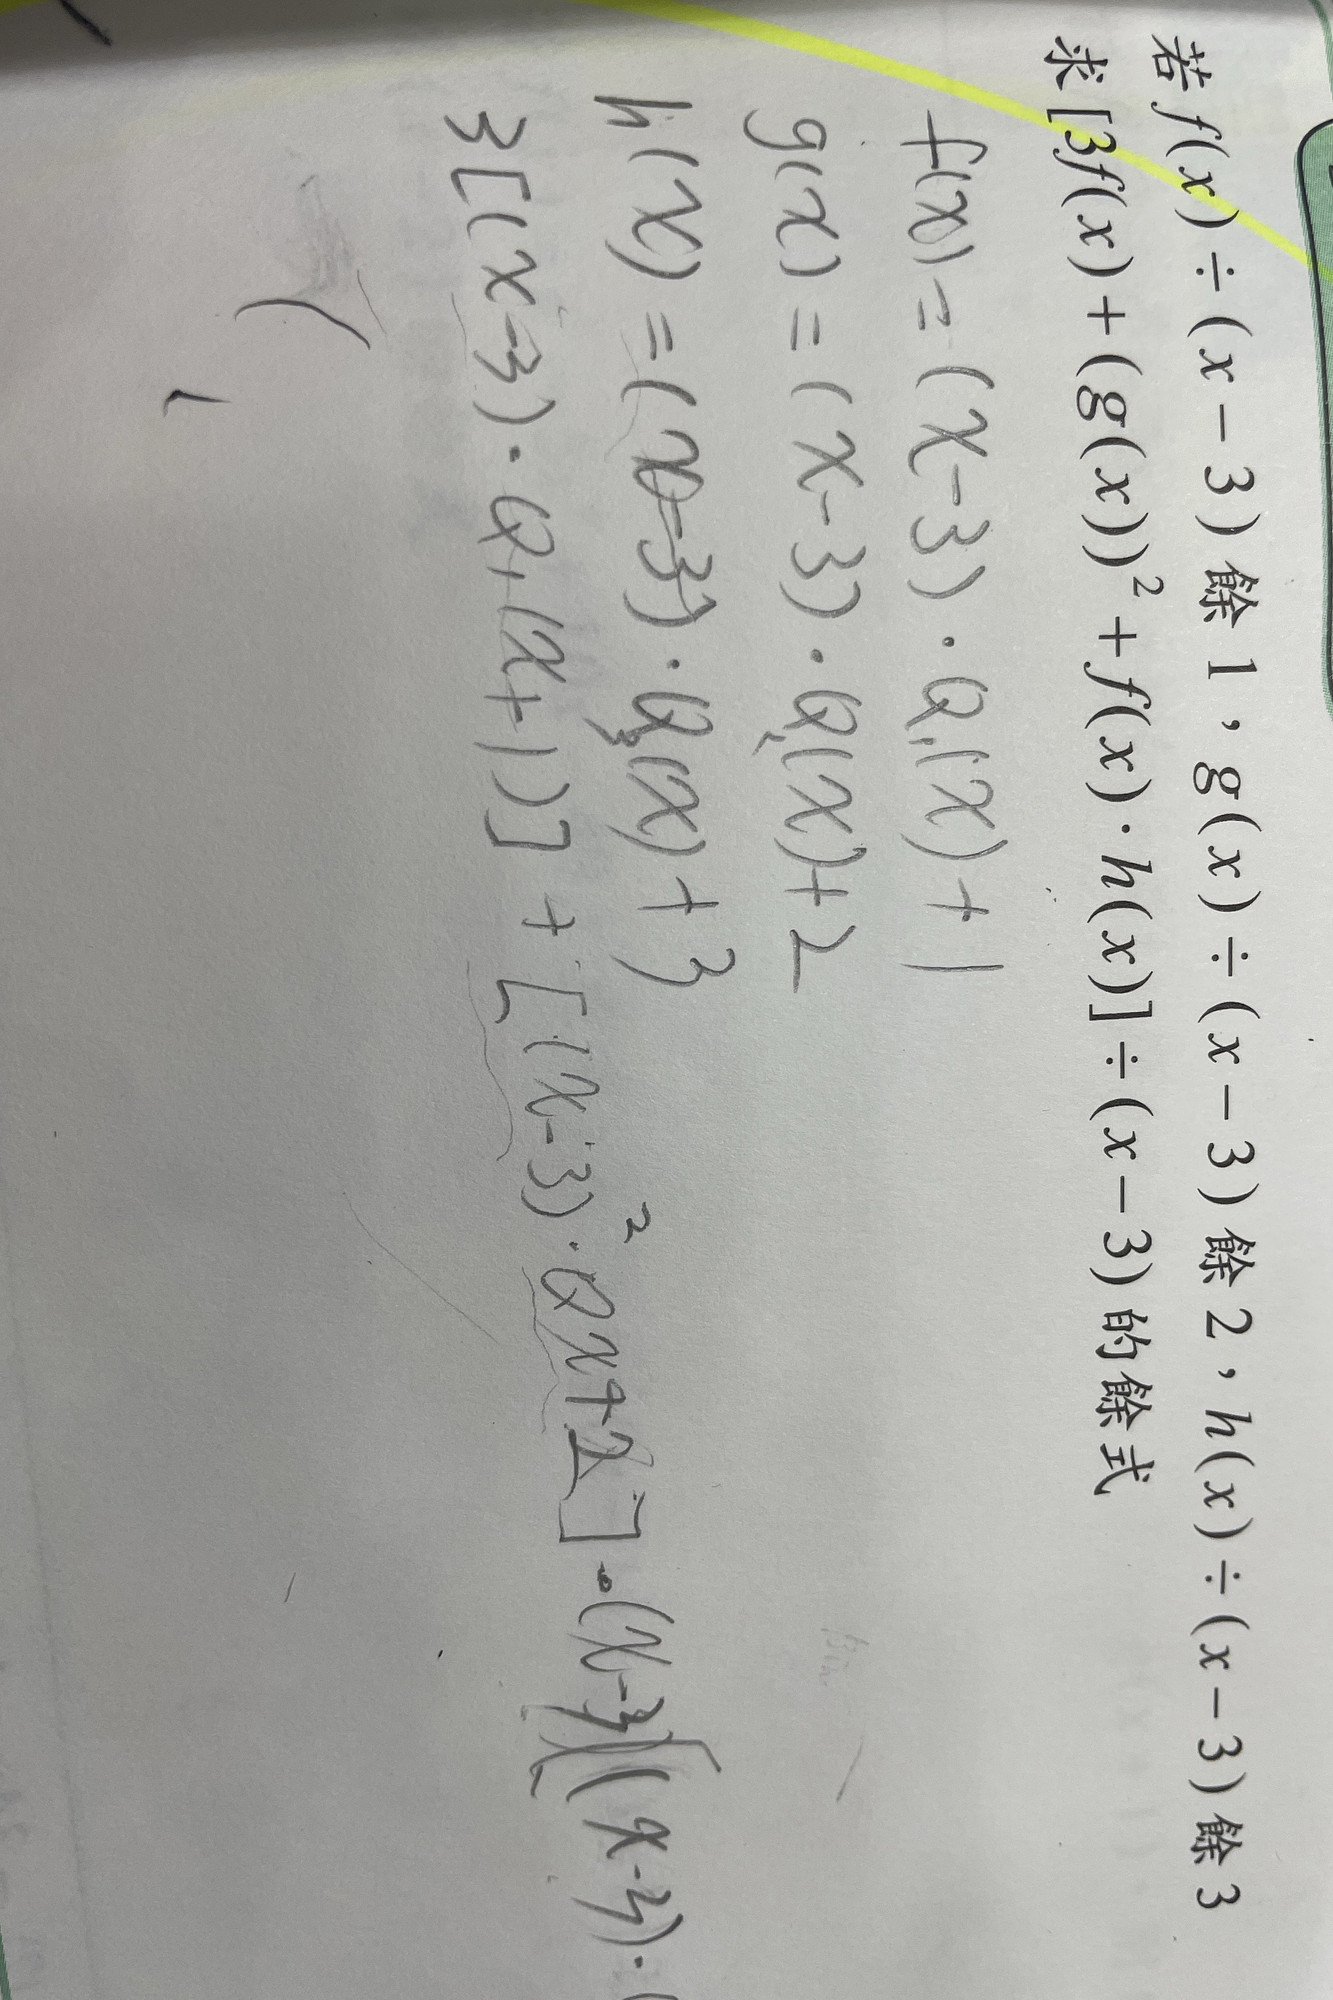 若 f(x)÷(x-3) 餘 1，g(x)÷(x-3) 餘 2，h(x)÷(x-3) 餘 3
求 [3f(x)+(g(x))²+f(x)·h(x)]÷(x-3) 的餘式
f(x)=(x-3)·Q₁(x)+1
g(x)=(x-3)·Q₂(x)+2
h(x)=(x-3)·Q₃(x)+3
3[(x-3)·Q₁(x+1)]+[(x-3)²·Qx+2]·(x-3)[(x-3)·